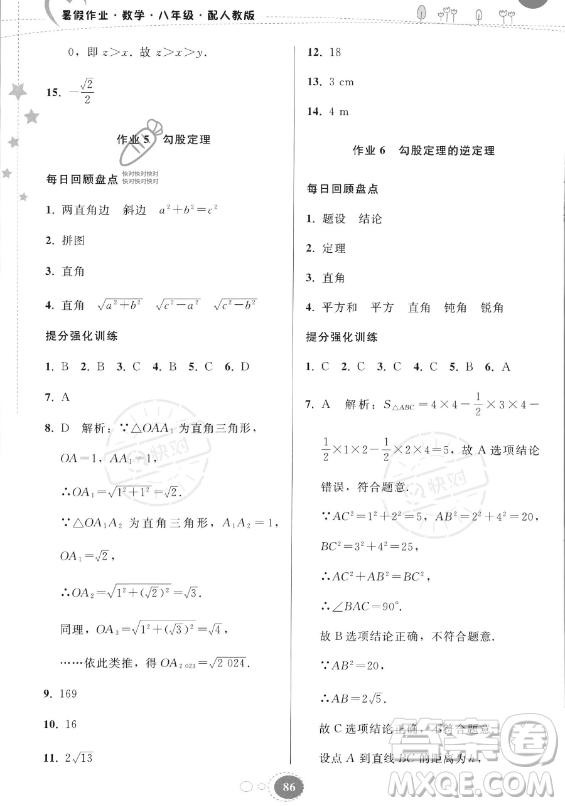 暑假作业·数学·八年级·配人教版
0，即 z＞x．故 z＞x＞y．
15．−√2/2
作业 5　勾股定理
快对快对快对
快对快对快对
每日回顾盘点
1．两直角边　斜边　a²＋b²＝c²
2．拼图
3．直角
4．直角　√(a²＋b²)　√(c²－a²)　√(c²－b²)
提分强化训练
1．B　2．B　3．C　4．A　5．C　6．C
7．A
8．D　解析：∵△OAA₁ 为直角三角形，
OA＝1，AA₁＝1，
∴OA₁＝√(1²＋1²)＝√2．
∵△OA₁A₂ 为直角三角形，A₁A₂＝1，
OA₁＝√2，
∴OA₂＝√(1²＋(√2)²)＝√3．
同理，OA₃＝√(1²＋(√3)²)＝√4，
……依此类推，得 OA₂₀₂₃＝√2 024．
9．169
10．16
11．2√13
12．18
13．3 cm
14．4 m
作业 6　勾股定理的逆定理
每日回顾盘点
1．题设　结论
2．定理
3．直角
4．平方和　平方　直角　钝角　锐角
提分强化训练
1．C　2．B　3．C　4．C　5．B　6．A
7．A　解析：S△ABC＝4×4－1/2×3×4－
1/2×1×2－1/2×4×2＝5，故 A 选项结论
错误，符合题意．
∵AC²＝1²＋2²＝5，AB²＝2²＋4²＝20，
BC²＝3²＋4²＝25，
∴AC²＋AB²＝BC²，
∴∠BAC＝90°．
故 B 选项结论正确，不符合题意．
∵AB²＝20，
∴AB＝2√5．
故 C 选项结论正确，不符合题意．
设点 A 到直线 BC 的距离为 h，
86
快对
快对
作业精灵
答案圈
MXQE.COM